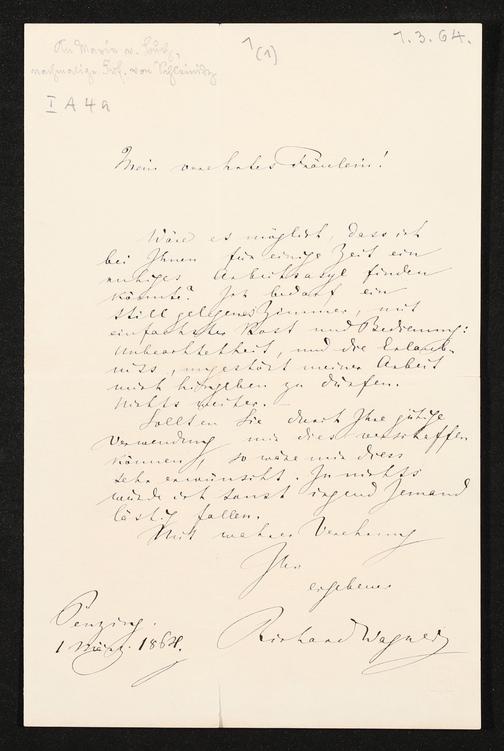 An Marie v.
nachmalige von Schleinitz
I A 4 a
1
(1)
1.3.64.
Mein verehrtes Fräulein!
Wäre es möglich, dass ich
bei Ihnen für einige Zeit ein
ruhiges Arbeitsasyl finden
könnte? Ich bedarf ein
still gelegenes Zimmer, mit
einfachster Kost und Bedienung:
Unbeachtetheit, und die Erlaub-
niss, ungestört meiner Arbeit
mich hingeben zu dürfen.
Nichts weiter. –
Sollten Sie durch Ihre gütige
Verwendung mir dies verschaffen
können, so wäre mir diess
sehr erwünscht. In nichts
würde ich sonst irgend Jemand
lästig fallen.
Mit wahrer Verehrung
Ihr
ergebener
Richard Wagner
Penzing.
1 März. 1864.